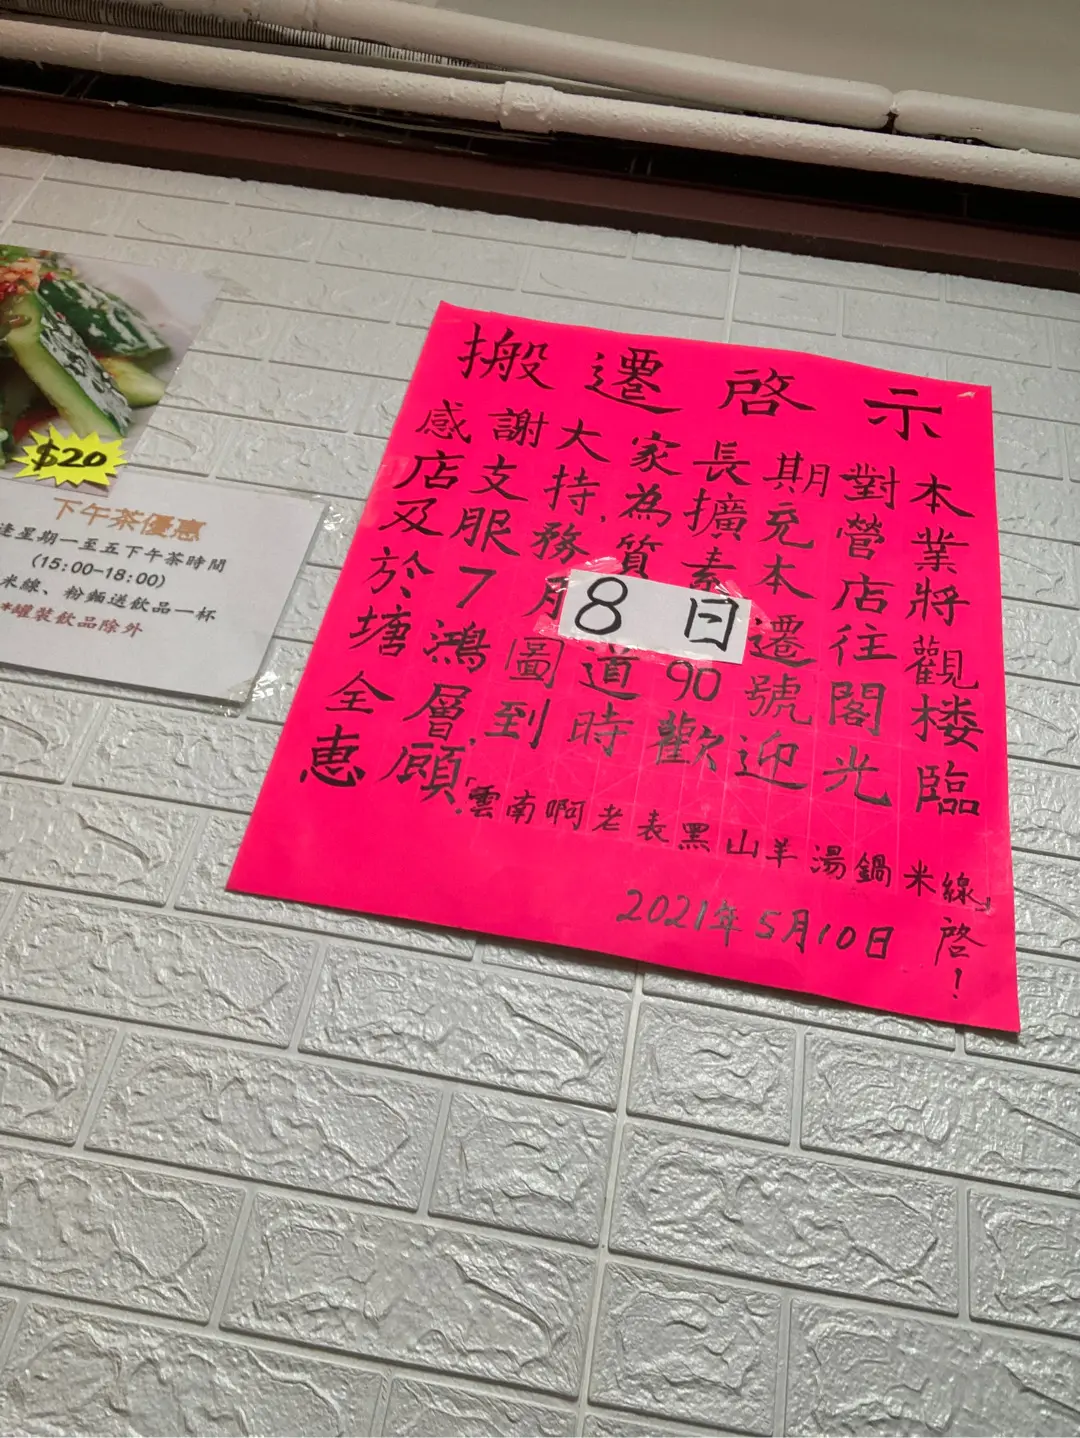 $20
下午茶優惠
逢星期一至五下午茶時間
(15:00-18:00)
米線、粉麵送飲品一杯
*罐裝飲品除外
搬遷啓示
感謝大家長期對本
店支持,為擴充營業
及服務質素本店將
於7月8日遷往觀
塘鴻圖道90號閣楼
全層,到時歡迎光臨
惠顧.
「雲南啊老表黑山羊湯鍋米線」
2021年5月10日 啓!